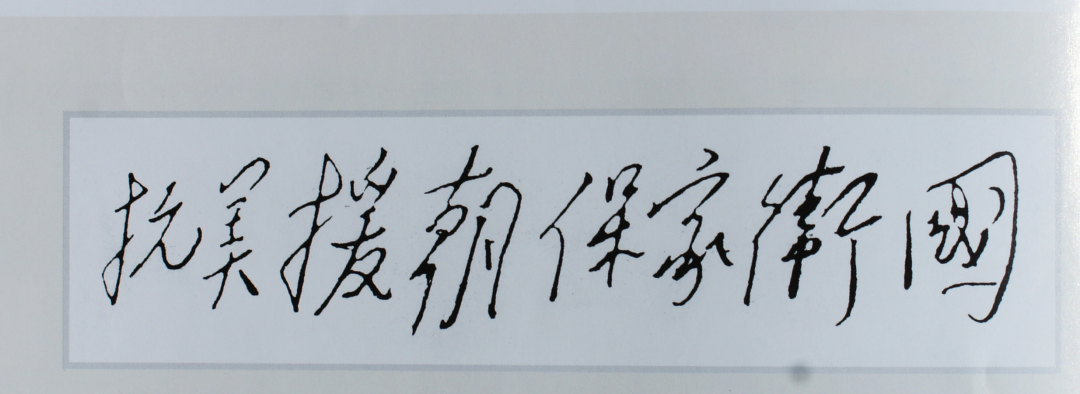 抗美援朝保家衛國